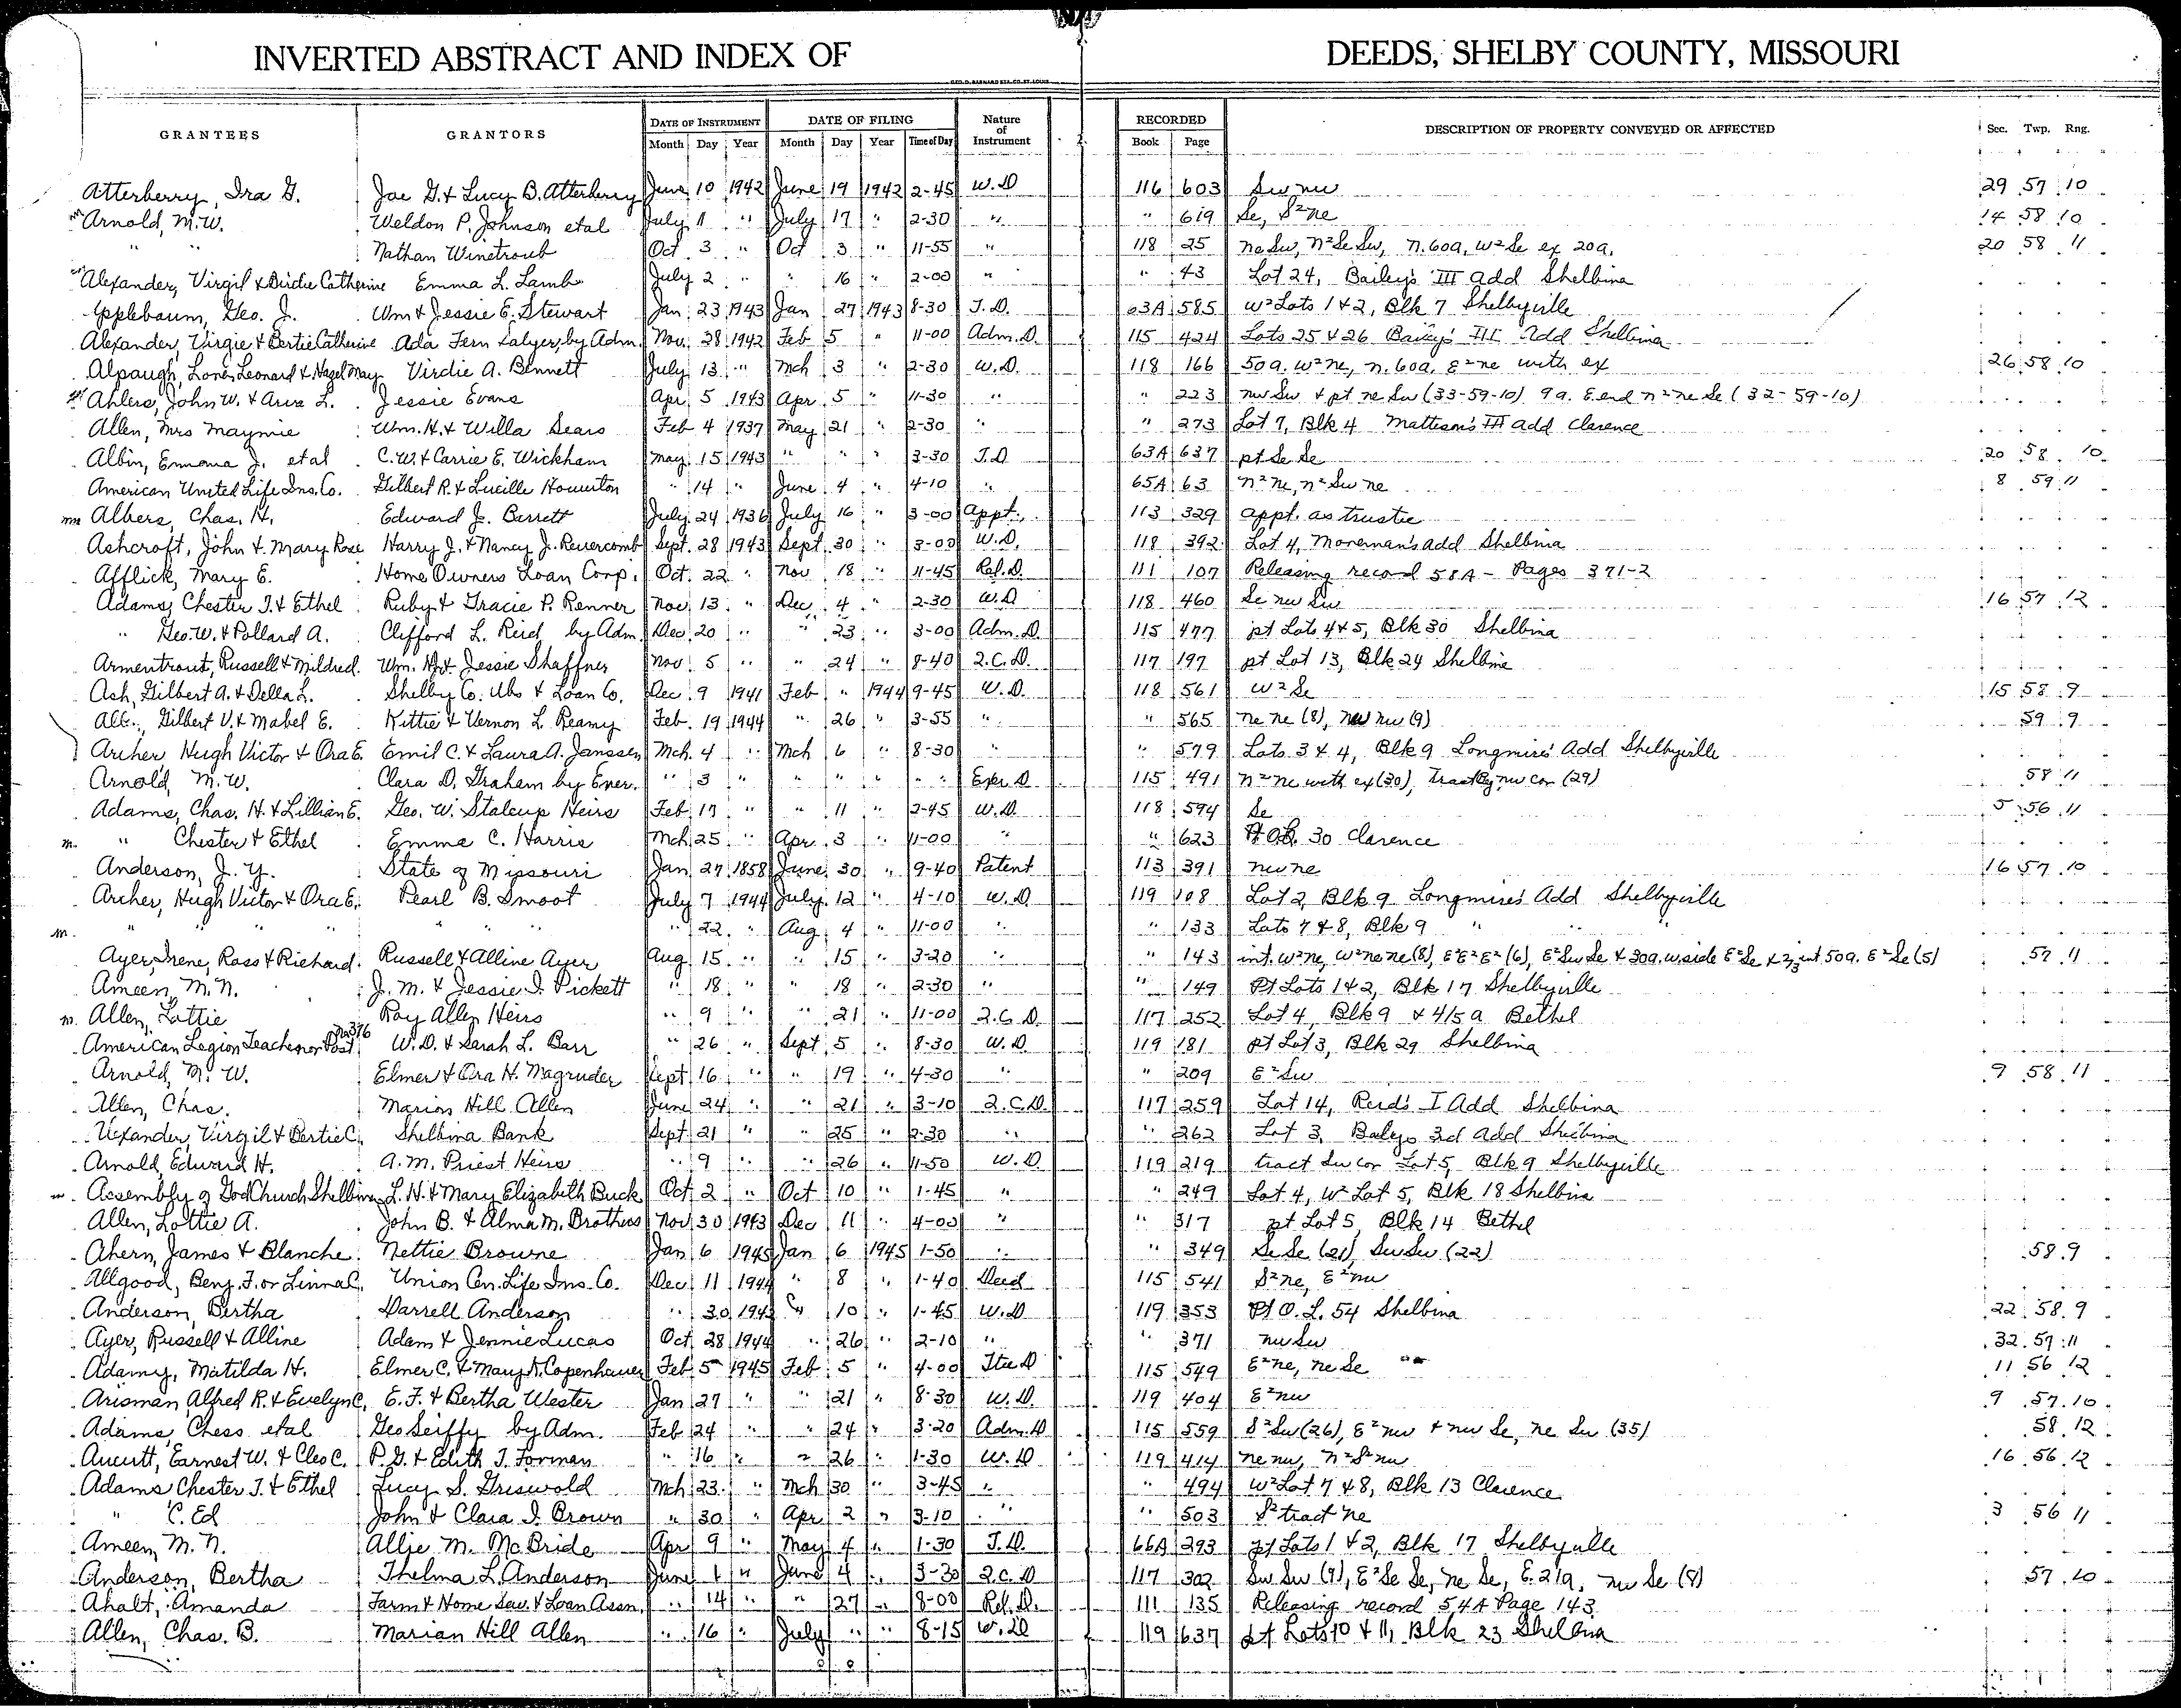 INVERTED ABSTRACT AND INDEX OF DEEDS, SHELBY COUNTY, MISSOURI
GEO. D. BARNARD STA. CO. ST. LOUIS
GRANTEES GRANTORS DATE OF INSTRUMENT DATE OF FILING Nature of Instrument RECORDED DESCRIPTION OF PROPERTY CONVEYED OR AFFECTED Sec. Twp. Rng.
Month Day Year Month Day Year Time of Day Book Page
Atterberry, Ira G. Joe G. & Lucy B. Atterberry June 10 1942 June 19 1942 2-45 W.D 116 603 Sw nw 29 57 10
Arnold, M.W. Weldon P. Johnson etal July 11 " July 17 " 2-30 " " 619 Se, S²ne 14 58 10
" " Nathan Winetroub Oct 3 " Oct 3 " 11-55 " 118 25 ne Sw, n²Se Sw, n.60a, w²Se ex 20a. 20 58 11
Alexander, Virgil & Birdie Catherine Emma L. Lamb July 2 " " 16 " 2-00 " " 43 Lot 24, Bailey's III add Shelbina
Applebaum, Geo. J. Wm & Jessie E. Stewart Jan 23 1943 Jan 27 1943 8-30 T.D. 63A 585 w² Lots 1 & 2, Blk 7 Shelbyville
Alexander, Virgie & Bertie Catherine Ada Fern Salyer, by Adm. Nov. 28 1942 Feb 5 " 11-00 Adm.D. 115 424 Lots 25 & 26 Bailey's III Add Shelbina
Alpaugh, Loren Leonard & Hazel May Virdie A. Bennett July 13 " Mch 3 " 2-30 W.D. 118 166 50a. w²ne, n.60a. E²ne with ex 26 58 10
Ahlers, John W. & Arva L. Jessie Evans Apr 5 1943 Apr. 5 " 11-30 " " 223 nw Sw & pt ne Sw (33-59-10) 9a. E end n²ne Se (32-59-10)
Allen, Mrs Maymie Wm. H. & Willa Sears Feb 4 1937 May 21 " 2-30 " " 273 Lot 7, Blk 4 Mattison's III add Clarence
Albin, Emma J. etal C.W. & Carrie E. Wickham May 15 1943 " " " 3-30 T.D 63A 637 pt Se Se 20 58 10
American United Life Ins. Co. Gilbert R. & Lucille Howerton " 14 " June 4 " 4-10 " 65A 63 n²ne, n²Sw ne 8 59 11
Albers, Chas. H. Edward J. Barrett July 24 1936 July 16 " 3-00 Appt. 113 329 appt. as trustee
Ashcroft, John & Mary Rose Harry J. & Nancy J. Revercomb Sept. 28 1943 Sept. 30 " 3-00 W.D. 118 392 Lot 4, Moreman's add Shelbina
Afflick, Mary E. Home Owners Loan Corp. Oct. 22 " Nov 18 " 11-45 Rel.D. 111 107 Releasing record 58A - Pages 371-2
Adams, Chester T. & Ethel Ruby & Gracie P. Renner Nov. 13 " Dec 4 " 2-30 W.D 118 460 Se nw Sw 16 57 12
" Geo. W. & Pollard A. Clifford L. Reid by Adm. Dec 20 " " 23 " 3-00 Adm.D. 115 477 pt Lots 4 & 5, Blk 30 Shelbina
Armentrout, Russell & Mildred Wm. H. & Jessie Shaffner Nov 5 " " 24 " 8-40 Q.C.D. 117 197 pt Lot 13, Blk 24 Shelbina
Ash, Gilbert A. & Della L. Shelby Co. Abs & Loan Co. Dec 9 1941 Feb " 1944 9-45 W.D. 118 561 w²Se 15 58 9
Gilbert V. & Mabel E. Kittie & Vernon L. Reamy Feb. 19 1944 " 26 " 3-55 " " 565 ne ne (8), nw nw (9) 59 9
Archer, Hugh Victor & Ora E. Emil C. & Laura A. Janssen Mch. 4 " Mch 6 " 8-30 " " 579 Lots 3 & 4, Blk 9 Longmire's Add Shelbyville
Arnold, M.W. Clara D. Graham by Exer. " 3 " " " " " Exer D 115 491 n²ne with ex (30), tract nw cor (29) 58 11
Adams, Chas. H. & Lillian E. Geo. W. Stalcup Heirs Feb 17 " " 11 " 2-45 W.D. 118 594 Se 5 56 11
" Chester & Ethel Emma C. Harris Mch 25 " Apr 3 " 11-00 " " 623 Pt O.L. 30 Clarence
Anderson, J.Y. State of Missouri Jan 27 1858 June 30 " 9-40 Patent 113 391 nw ne 16 57 10
Archer, Hugh Victor & Ora E. Pearl B. Smoot July 7 1944 July 12 " 4-10 W.D 119 108 Lot 2, Blk 9 Longmire's Add Shelbyville
" " " " " " " 22 " Aug 4 " 11-00 " " 133 Lots 7 & 8, Blk 9 " "
Ayer, Irene, Ross & Richard Russell & Alline Ayer Aug. 15 " " 15 " 3-20 " " 143 int. w²ne, w²ne ne (8), E²E²E² (6), E²Sw Se & 30a. w side E²Se & 2/3 int 50a. E²Se (5) 57 11
Ameen, M.N. J.M. & Jessie I. Pickett " 18 " " 18 " 2-30 " " 149 Pt Lots 1 & 2, Blk 17 Shelbyville
Allen, Lottie Roy Allen Heirs " 9 " " 21 " 11-00 Q.C.D. 117 252 Lot 4, Blk 9 & 4/5 a Bethel
American Legion Post No 376 W.D. & Sarah L. Barr " 26 " Sept 5 " 8-30 W.D. 119 181 pt Lot 3, Blk 29 Shelbina
Arnold, M.W. Elmer & Ora H. Magruder Sept 16 " " 19 " 4-30 " " 209 E²Sw 9 58 11
Allen, Chas. Marion Hill Allen June 24 " " 21 " 3-10 Q.C.D. 117 259 Lot 14, Reid's I Add Shelbina
Alexander, Virgil & Bertie C. Shelbina Bank Sept 21 " " 25 " 2-30 " " 262 Lot 3, Baleys 3d Add Shelbina
Arnold, Edward H. A.M. Priest Heirs " 9 " " 26 " 11-50 W.D. 119 219 tract Sw cor Lot 5, Blk 9 Shelbyville
Assembly of God Church Shelbina L.H. & Mary Elizabeth Buck Oct 2 " Oct 10 " 1-45 " " 249 Lot 4, W² Lot 5, Blk 18 Shelbina
Allen, Lottie A. John B. & Alma M. Brothers Nov 30 1943 Dec 11 " 4-00 " " 317 pt Lot 5, Blk 14 Bethel
Ahern, James & Blanche Nettie Browne Jan 6 1945 Jan 6 1945 1-50 " " 349 Se Se (21), Sw Sw (22) 58 9
Allgood, Benj. F. or Linna C. Union Cen. Life Ins. Co. Dec 11 1944 " 8 " 1-40 Deed 115 541 S²ne, E²nw
Anderson, Bertha Darrell Anderson " 30 1943 " 10 " 1-45 W.D 119 353 Pt O.L. 54 Shelbina 22 58 9
Ayer, Russell & Alline Adam & Jennie Lucas Oct 28 1944 " 26 " 2-10 " " 371 nw Sw 32 57 11
Adamy, Matilda H. Elmer C. & Mary N. Copenhaver Feb 5 1945 Feb 5 " 4-00 Ttee D 115 549 E²ne, ne Se 11 56 12
Arisman, Alfred R. & Evelyn C. E.F. & Bertha Wester Jan 27 " " 21 " 8-30 W.D. 119 404 E²nw 9 57 10
Adams, Chess. etal Geo Seiffy by Adm. Feb 24 " " 24 " 3-20 Adm.D 115 559 S²Sw (26), E²nw & nw Se, ne Sw (35) 58 12
Aucutt, Earnest W. & Cleo C. P.G. & Edith T. Forman " 16 " " 26 " 1-30 W.D 119 414 ne nw, n²S²nw 16 56 12
Adams Chester T. & Ethel Lucy S. Griswold Mch 23 " Mch 30 " 3-45 " " 494 W² Lot 7 & 8, Blk 13 Clarence
" C. Ed John & Clara I. Brown " 30 " Apr 2 " 3-10 " " 503 S² tract ne 3 56 11
Ameen, M.N. Allie M. McBride Apr 9 " May 4 " 1-30 T.D. 66A 293 pt Lots 1 & 2, Blk 17 Shelbyville
Anderson, Bertha Thelma L. Anderson June 1 " June 4 " 3-30 Q.C.D 117 302 Sw Sw (9), E²Se Se, ne Se, E.21a. nw Se (8) 57 10
Ahalt, Amanda Farm & Home Sav. & Loan Assn. " 14 " " 27 " 8-00 Rel.D. 111 135 Releasing record 54A Page 143
Allen, Chas. B. Marian Hill Allen " 16 " July " " 8-15 W.D 119 637 pt Lots 10 & 11, Blk 23 Shelbina